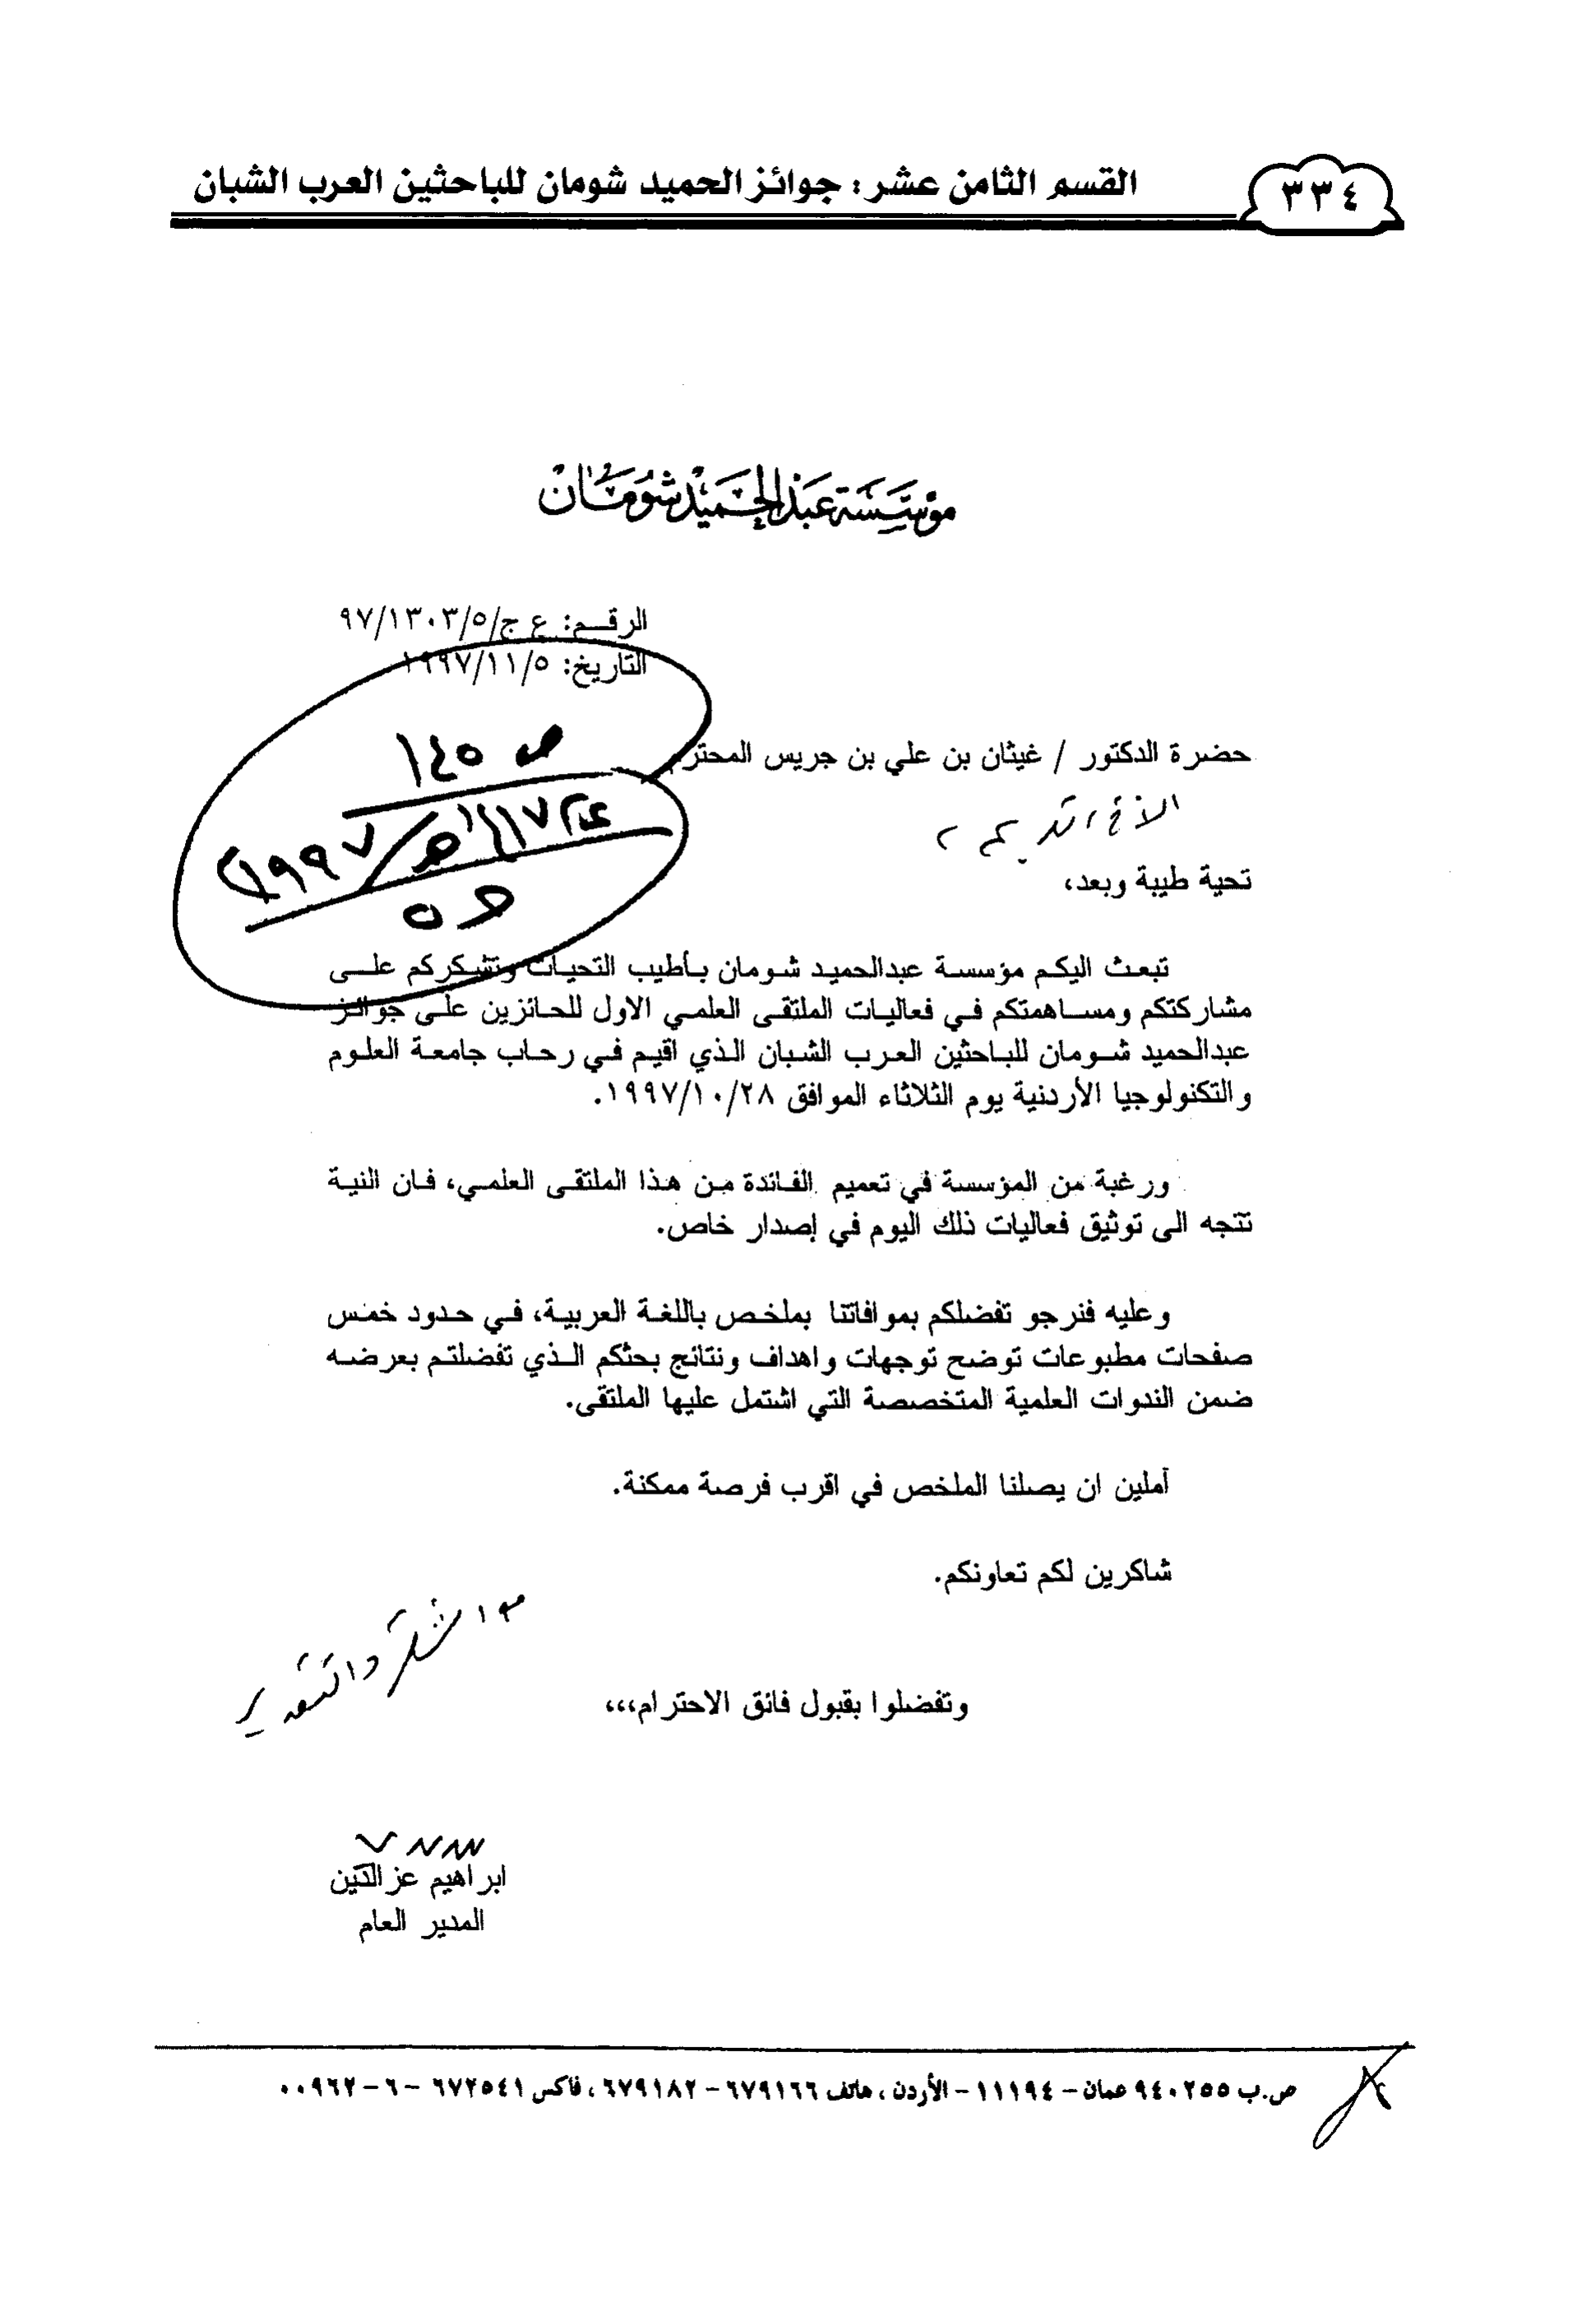 ٣٣٤
القسم الثامن عشر: جوائز الحميد شومان للباحثين العرب الشبان
مؤسسة عبد الحميد شومان
الرقم: ع ج/٩٧/١٣٠٣/٥
التاريخ: ١٩٩٧/١١/٥
ص ١٤٥
حضرة الدكتور / غيثان بن علي بن جريس المحترم
تحية طيبة وبعد،
تبعث اليكم مؤسسة عبدالحميد شومان بأطيب التحيات وتشكركم على
مشاركتكم ومساهمتكم في فعاليات الملتقى العلمي الاول للحائزين على جوائز
عبدالحميد شومان للباحثين العرب الشبان الذي اقيم في رحاب جامعة العلوم
والتكنولوجيا الأردنية يوم الثلاثاء الموافق ١٩٩٧/١٠/٢٨.
ورغبة من المؤسسة في تعميم الفائدة من هذا الملتقى العلمي، فان النية
تتجه الى توثيق فعاليات ذلك اليوم في إصدار خاص.
وعليه فنرجو تفضلكم بموافاتنا بملخص باللغة العربية، في حدود خمس
صفحات مطبوعات توضح توجهات واهداف ونتائج بحثكم الذي تفضلتم بعرضه
ضمن الندوات العلمية المتخصصة التي اشتمل عليها الملتقى.
آملين ان يصلنا الملخص في اقرب فرصة ممكنة.
شاكرين لكم تعاونكم.
مع الشكر والتقدير
وتفضلوا بقبول فائق الاحترام،،،
ابراهيم عزالدين
المدير العام
ص.ب ٩٤٠٢٥٥ عمان - ١١١٩٤ - الأردن، هاتف ٦٧٩١٦٦ - ٦٧٩١٨٢، فاكس ٦٧٢٥٤١ - ٦ - ٠٠٩٦٢